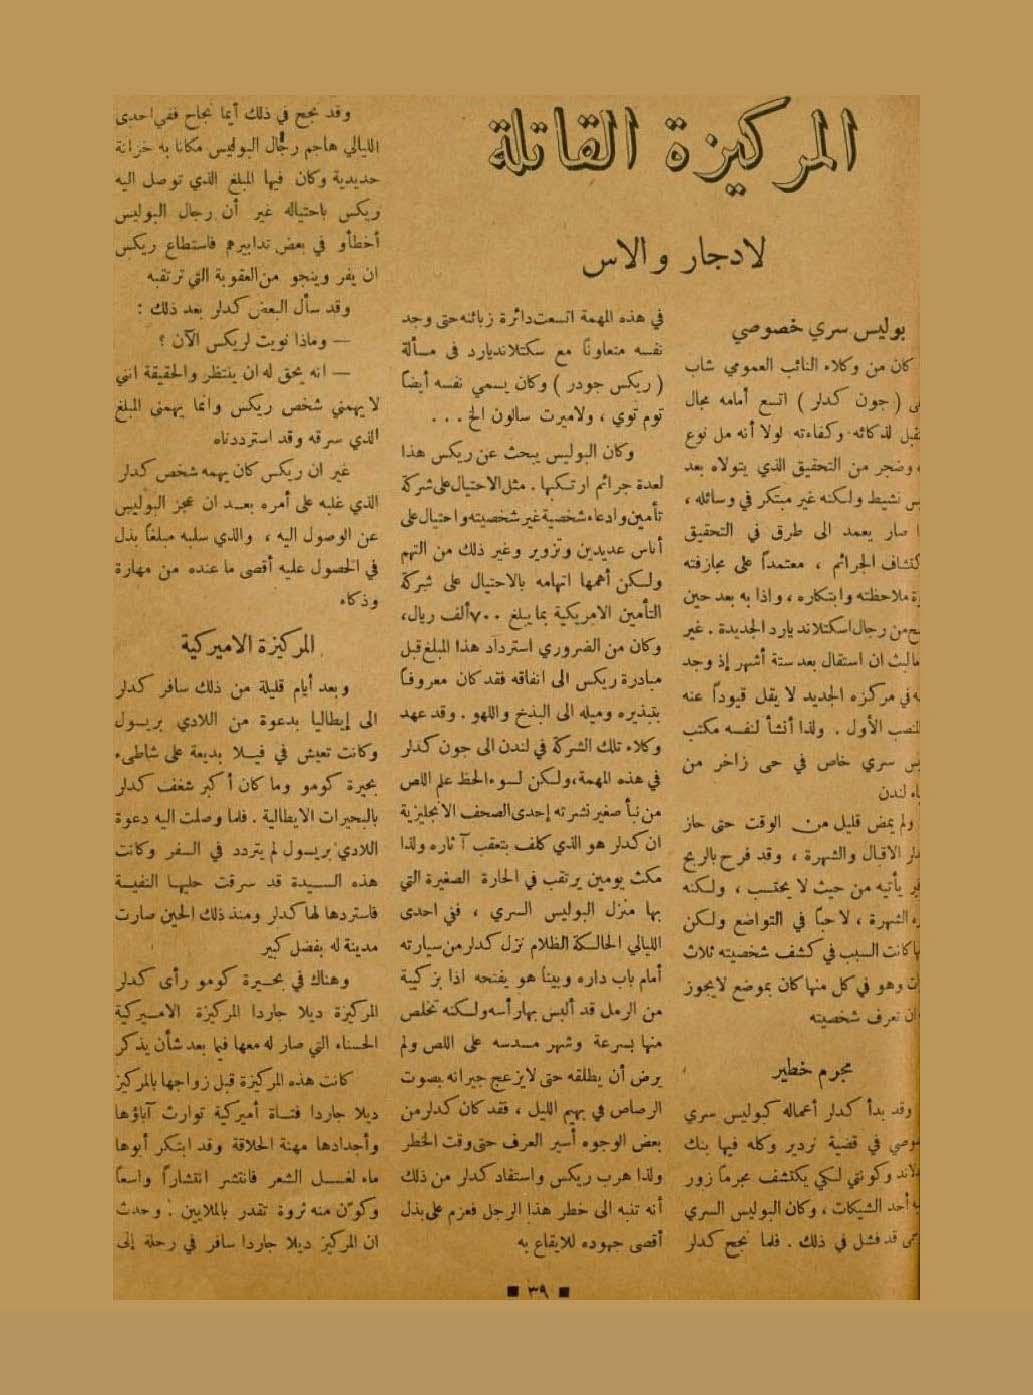 المركيزة القاتلة
لادجار والاس
بوليس سري خصوصي
كان من وكلاء النائب العمومي شاب
( جون كدلر ) اتسع أمامه مجال
لذكائه وكفاءته لولا أنه مل نوع
وضجر من التحقيق الذي يتولاه بعد
نشيط ولكنه غير مبتكر في وسائله ،
صار يعمد الى طرق في التحقيق
الجرائم ، معتمداً على مجازفته
ملاحظته وابتكاره ، واذا به بعد حين
من رجال اسكتلانديارد الجديدة . غير
ان استقال بعد ستة أشهر إذ وجد
في مركزه الجديد لا يقل قيوداً عنه
الأول . ولذا أنشأ لنفسه مكتب
سري خاص في حى زاخر من
لندن
ولم يمض قليل من الوقت حتى حاز
الاقبال والشهرة ، وقد فرح بالربح
يأتيه من حيث لا يحتسب ، ولكنه
الشهرة ، لا حباً في التواضع ولكن
كانت السبب في كشف شخصيته ثلاث
وهو في كل منها كان بموضع لايجوز
ان تعرف شخصيته
مجرم خطير
وقد بدأ كدلر أعماله كبوليس سري
في قضية تزدير وكله فيها بنك
وكونتي لكي يكتشف مجرماً زور
أحد الشيكات ، وكان البوليس السري
قد فشل في ذلك . فلما نجح كدلر
في هذه المهمة اتسعت دائرة زبائنه حتى وجد
نفسه متعاوناً مع سكتلانديارد فى مسألة
( ريكس جودر ) وكان يسمي نفسه أيضاً
توم توي ، ولاميرت سالون الخ . . .
وكان البوليس يبحث عن ريكس هذا
لعدة جرائم ارتكبها . مثل الاحتيال على شركة
تأمين وادعاء شخصية غير شخصيته واحتيال على
أناس عديدين وتزوير وغير ذلك من التهم
ولكن أهمها اتهامه بالاحتيال على شركة
التأمين الامريكية بما يبلغ ٧٠٠ ألف ريال،
وكان من الضروري استرداد هذا المبلغ قبل
مبادرة ريكس الى انفاقه فقد كان معروفاً
بتبذيره وميله الى البذخ واللهو . وقد عهد
وكلاء تلك الشركة في لندن الى جون كدلر
في هذه المهمة ، ولكن لسوء الحظ علم اللص
من نبأ صغير نشرته إحدى الصحف الانجليزية
ان كدلر هو الذي كلف بتعقب آثاره ولذا
مكث يومين يرتقب في الحارة الصغيرة التي
بها منزل البوليس السري ، ففي احدى
الليالي الحالكة الظلام نزل كدلر من سيارته
أمام باب داره وبينا هو يفتحه اذا بزكيبة
من الرمل قد ألبس بها رأسه ولكنه تخلص
منها بسرعة وشهر مسدسه على اللص ولم
يرض أن يطلقه حتى لا يزعج جيرانه بصوت
الرصاص في بهيم الليل ، فقد كان كدلر من
بعض الوجوه أسير العرف حتى وقت الخطر
ولذا هرب ريكس واستفاد كدلر من ذلك
أنه تنبه الى خطر هذا الرجل فعزم على بذل
أقصى جهوده للايقاع به
وقد نجح في ذلك أيما نجاح ففي احدى
الليالي هاجم رجال البوليس مكانا به خزانة
حديدية وكان فيها المبلغ الذي توصل اليه
ريكس باحتياله غير أن رجال البوليس
أخطأو في بعض تدابيرهم فاستطاع ريكس
ان يفر وينجو من العقوبة التي ترتقبه
وقد سأل البعض كدلر بعد ذلك :
— وماذا نويت لريكس الآن ؟
— انه يحق له ان ينتظر والحقيقة انني
لا يهمني شخص ريكس وانما يهمني المبلغ
الذي سرقه وقد استرددناه
غير ان ريكس كان يهمه شخص كدلر
الذي غلبه على أمره بعد ان عجز البوليس
عن الوصول اليه ، والذي سلبه مبلغاً بذل
في الحصول عليه أقصى ما عنده من مهارة
وذكاء
المركيزة الاميركية
وبعد أيام قليلة من ذلك سافر كدلر
الى إيطاليا بدعوة من اللادي بريسول
وكانت تعيش في فيلا بديعة على شاطىء
بحيرة كومو وما كان أكبر شغف كدلر
بالبحيرات الايطالية . فلما وصلت اليه دعوة
اللادي بريسول لم يتردد في السفر وكانت
هذه السيدة قد سرقت حليها النفية
فاستردها لها كدلر ومنذ ذلك الحين صارت
مدينة له بفضل كبير
وهناك في بحيرة كومو رأى كدلر
المركيزة ديلا جاردا المركيزة الاميركية
الحسناء التي صار له معها فيما بعد شأن يذكر
كانت هذه المركيزة قبل زواجها بالمركيز
ديلا جاردا فتاة أميركية توارث آباؤها
وأجدادها مهنة الحلاقة وقد ابتكر أبوها
ماء لغسل الشعر فانتشر انتشاراً واسعاً
وكون منه ثروة تقدر بالملايين . وحدث
ان المركيز ديلا جاردا سافر في رحلة إلى
٣٩